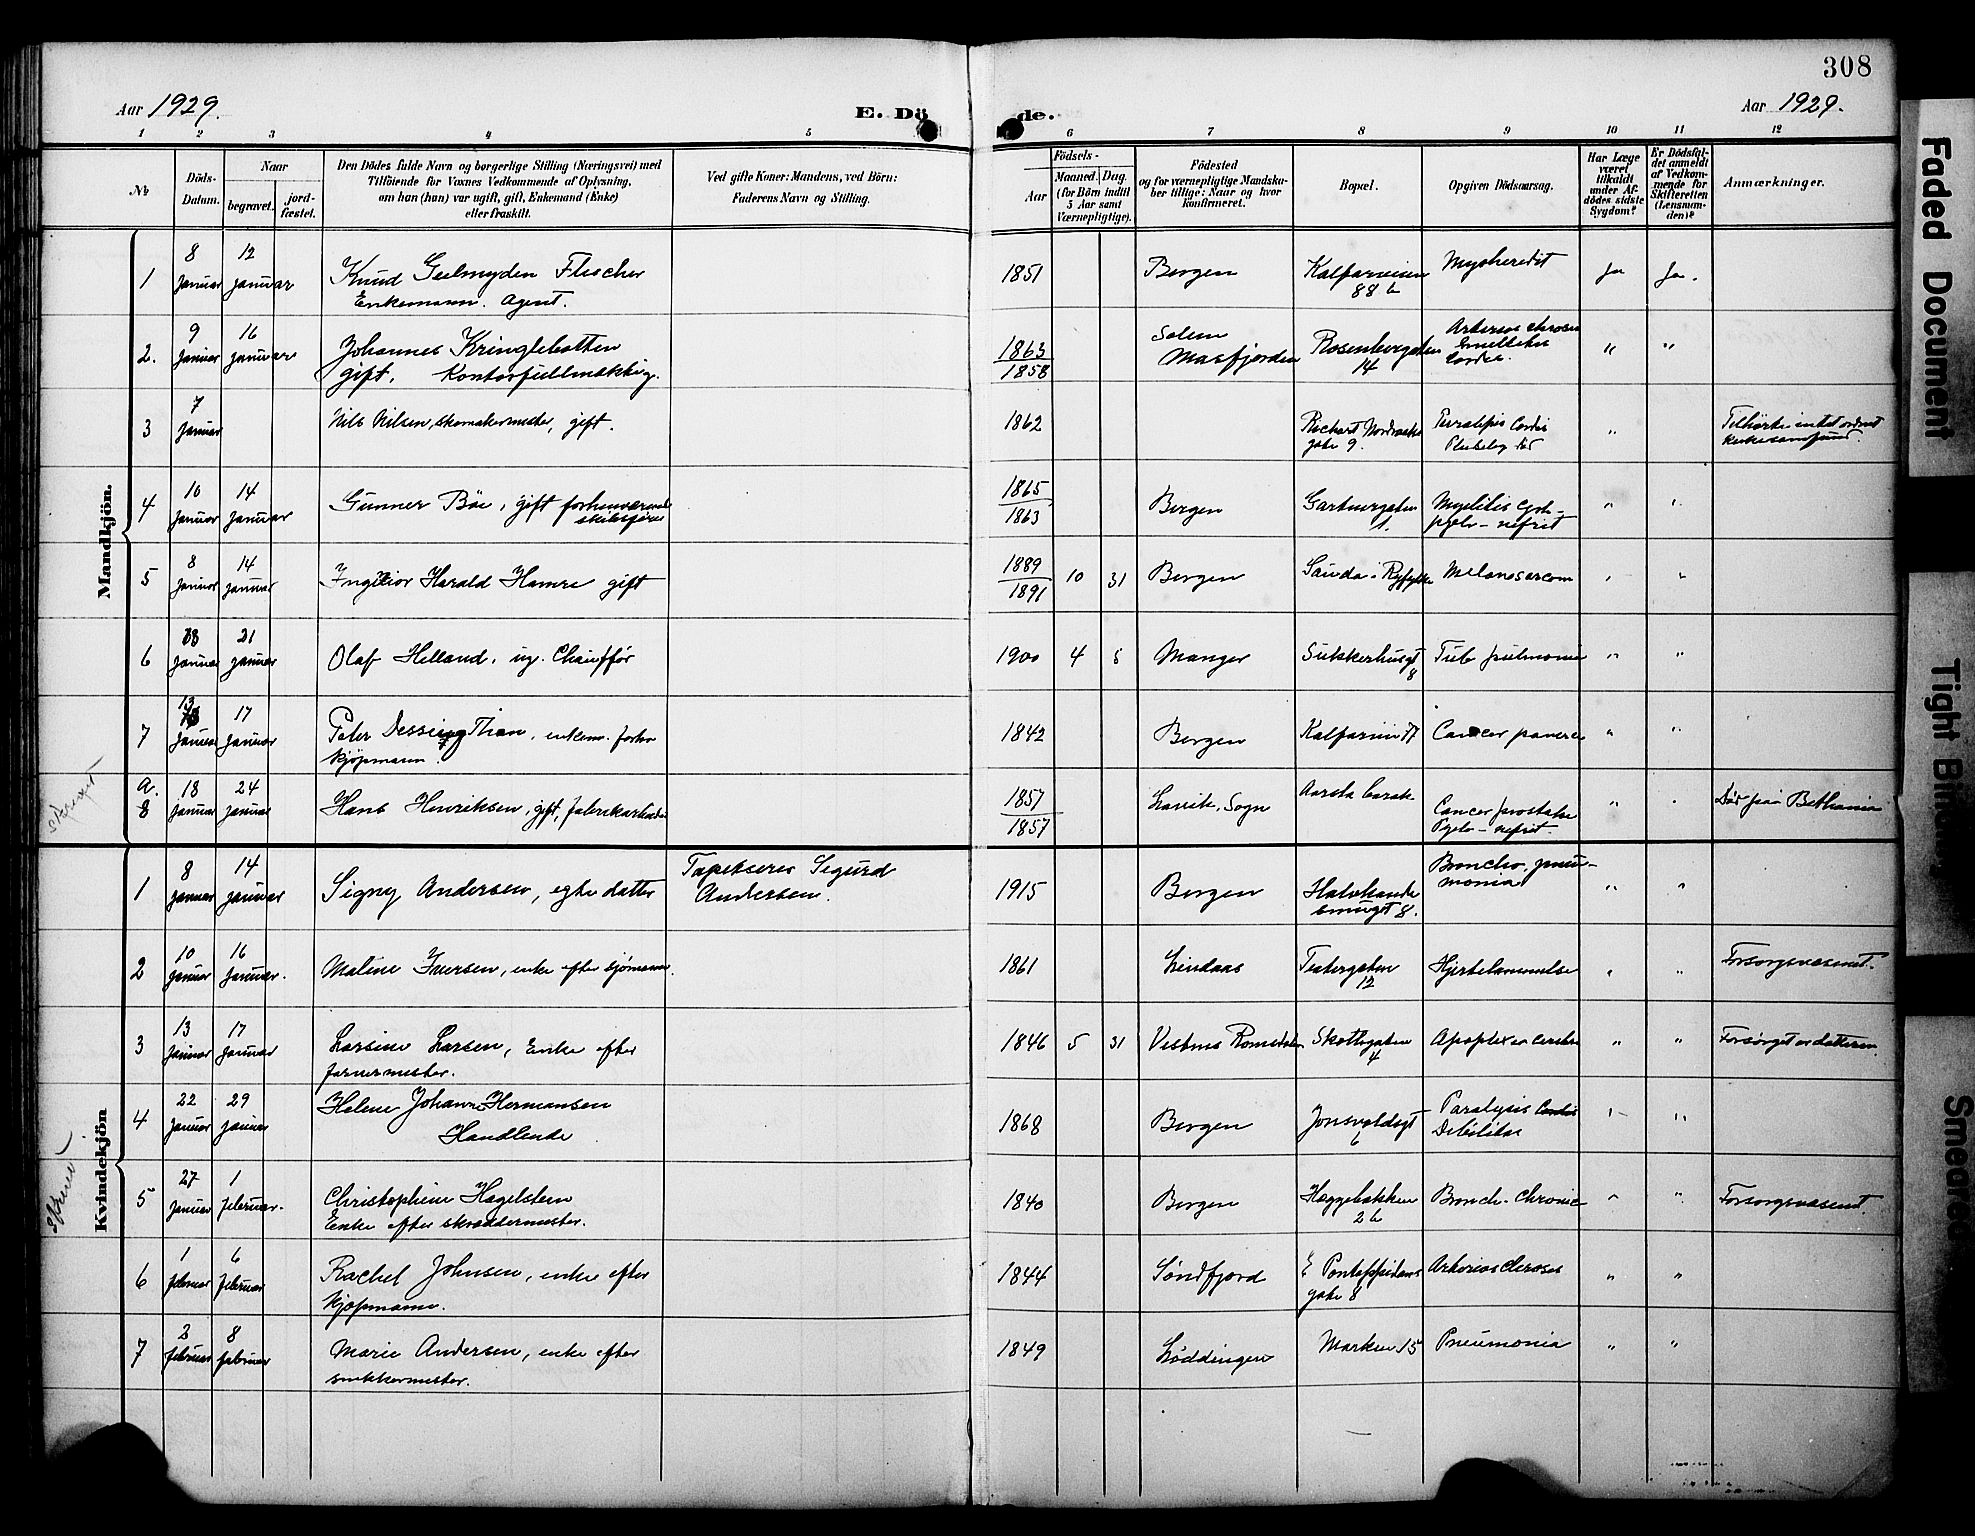 308
Aar 1929.
E. Dö de.
Aar 1929.
1 2 3 4 5 6 7 8 9 10 11 12
No
Döds-Datum.
Naar
begravet.
jord-fæstet.
Den Dödes fulde Navn og borgerlige Stilling (Næringsvei) med
Tilföiende for Voxnes Vedkommende af Oplysning,
om han (hun) var ugift, gift, Enkemand (Enke)
eller fraskilt.
Ved gifte Koner: Mandens, ved Börn:
Faderens Navn og Stilling.
Födsels-
Aar
Maaned. Dag.
(for Börn indtil
5 Aar samt
Værnepligtige).
Födested
og for værnepligtige Mandska-
ber tillige: Naar og hvor
konfirmeret.
Bopæl.
Opgiven Dödsaarsag.
Har Læge
været
tilkaldt
under Af-
dödes sidste
Sygdom?
Er Dödsfal-
det anmeldt
af Vedkom-
mende for
Skifteretten
(Lensman-
den)?
Anmærkninger.
Mandkjön.
1 8 Januar 12 Januar Knud Geelmyden Fleischer
Enkemann. Agent.
1851 Bergen Kalfarveien 88 b ja ja.
2. 9 Januar 16 Januar Johannes Kringlebotten
gift. Kontorfullmektig.
1863
1858 Solem Masfjorden Rosenbergsgaten 14 " "
3 7 Januar Nils Nilsen, skomakermester, gift.
1862 Richard Nordraaks gate 9. Paralysis Cordis "
4 10 Januar 14 Januar Gunner Böe, gift forhenværende
skibsfører
1865
1863 Bergen Gartnergaten 1. pyelo-nefrit " "
5 8 Januar 14 Januar Harald Hamre gift
1889
1891 10 31 Bergen Sauda i Ryfylke Melanosarcom " "
6 18 Januar 21 Januar Olaf Helland, ug. Chauffør
1900 4 5 Manger Sukkerhusgt 8 Tub pulmonum " "
7 13 Januar 17 Januar Peter Dessing Thien, enkem. forhv
Kjøpmann.
1842 Bergen Cancer " "
a. 8 18 Januar 24 Januar Hans Henriksen, gift, fabrikarbeider
1857
1857 Lavik, Sogn Cancer prostatæ
Pyelo-nefrit. " " Død paa Bethania
Kvindekjön
1 8 Januar 14 Januar Signy Andersen, egte datter Tapetserer Sigurd
Andersen.
1915 Bergen smuget 8. Broncho. pneu-
monia " "
2 10 Januar 16 Januar. Maline Iversen, enke efter sjømann.
1861 Lindaas Teatergaten 12 Hjertelammelse " " Forsorgsvæsenet.
3 13 Januar 17 Januar Larsine Larsen, Enke efter
farvermester.
1846 5 31 Vestnes Romsdalen Skottegaten 4 Apoplexia cerebri " " Forsørget av datteren.
4 22 Januar 29 Januar Helene Johanne Hermansen
Handlende
1868 Bergen Jonsvoldsgt 6 Paralysis Cordis
Debilitas " "
5 27 Januar 1 Februar. Christophine Hagelsteen
Enke efter skreddermester.
1840 Bergen Heggebakken 2 b Bronch. Chronic " " Forsorgsvæsenet.
6 1 Februar 6 Februar Rachel Johnsen, enke efter
Kjøpmann.
1844 Søndfjord E Pontoppidans gate 8 Arteriosclerosis " "
7 2 Februar 8 Februar Marie Andersen, enke efter
snekkermester.
1849 Løddingen Marken 15 Pneumonia " "
Faded Document
Tight Binding
Smeared